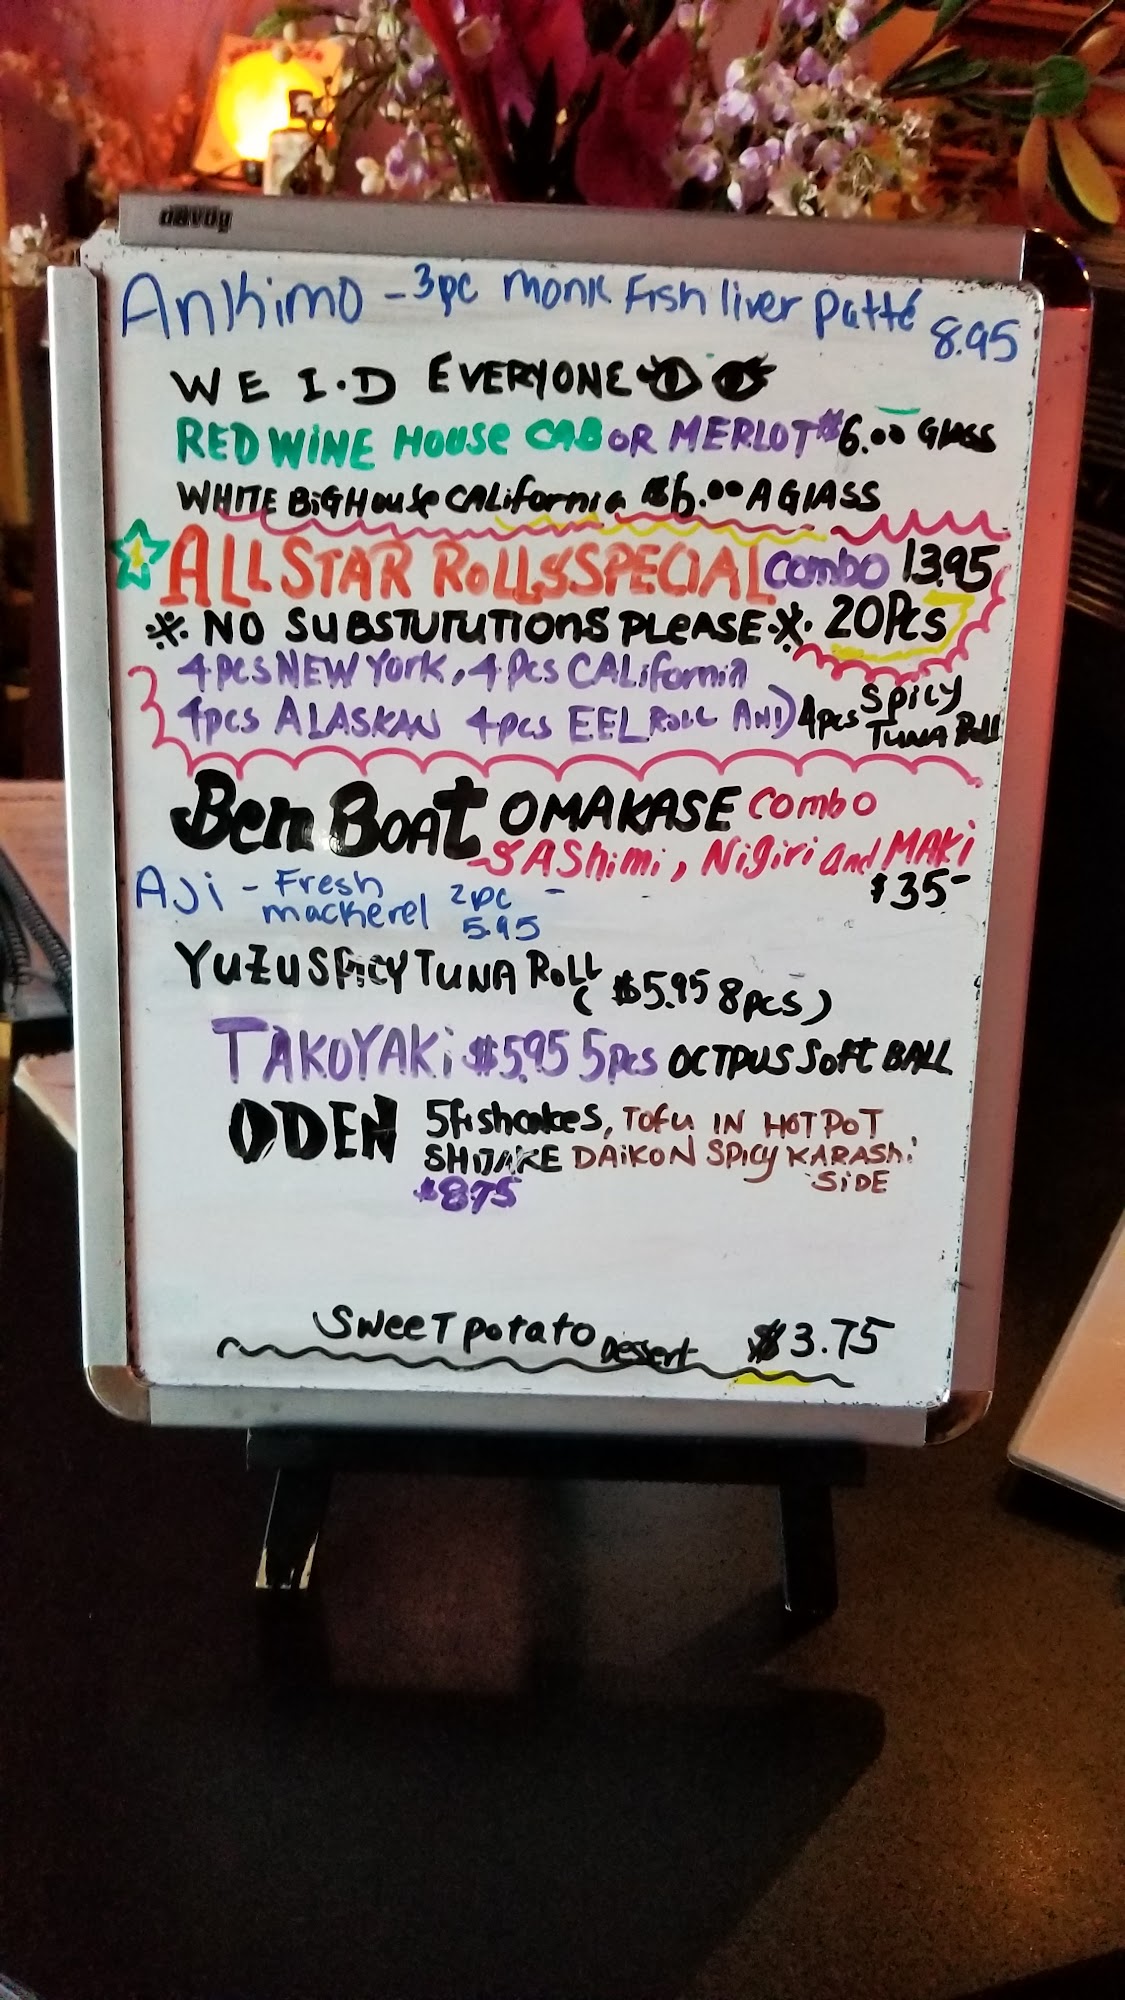 davoy
Ankimo - 3pc monk Fish liver patté 8.95
WE I.D EVERYONE
RED WINE HOUSE CAB OR MERLOT $6.00 GLASS
WHITE BIG HOUSE CALifornia $6.00 A GLASS
ALL STAR ROLLS SPECIAL combo 13.95
※ NO SUBSTUTUTIONS PLEASE ※ 20Pcs
4pcs NEW YORK, 4 Pcs CALifornia
4pcs ALASKAN 4pcs EEL ROLL AND 4pcs Spicy TUNA Roll
Ben BOAT OMAKASE combo
SAShimi, Nigiri and MAKi
$35-
Aji - Fresh mackerel 2pc - 5.95
YUZU SPICY TUNA ROLL ( $5.95 8pcs )
TAKOYAKi $5.95 5pcs OCTPUS Soft BALL
ODEN 5 fishcakes, TOFU IN HOT POT
SHITAKE DAIKON SPICY KARASHi SIDE
$8.75
SWEET potato Dessert $3.75